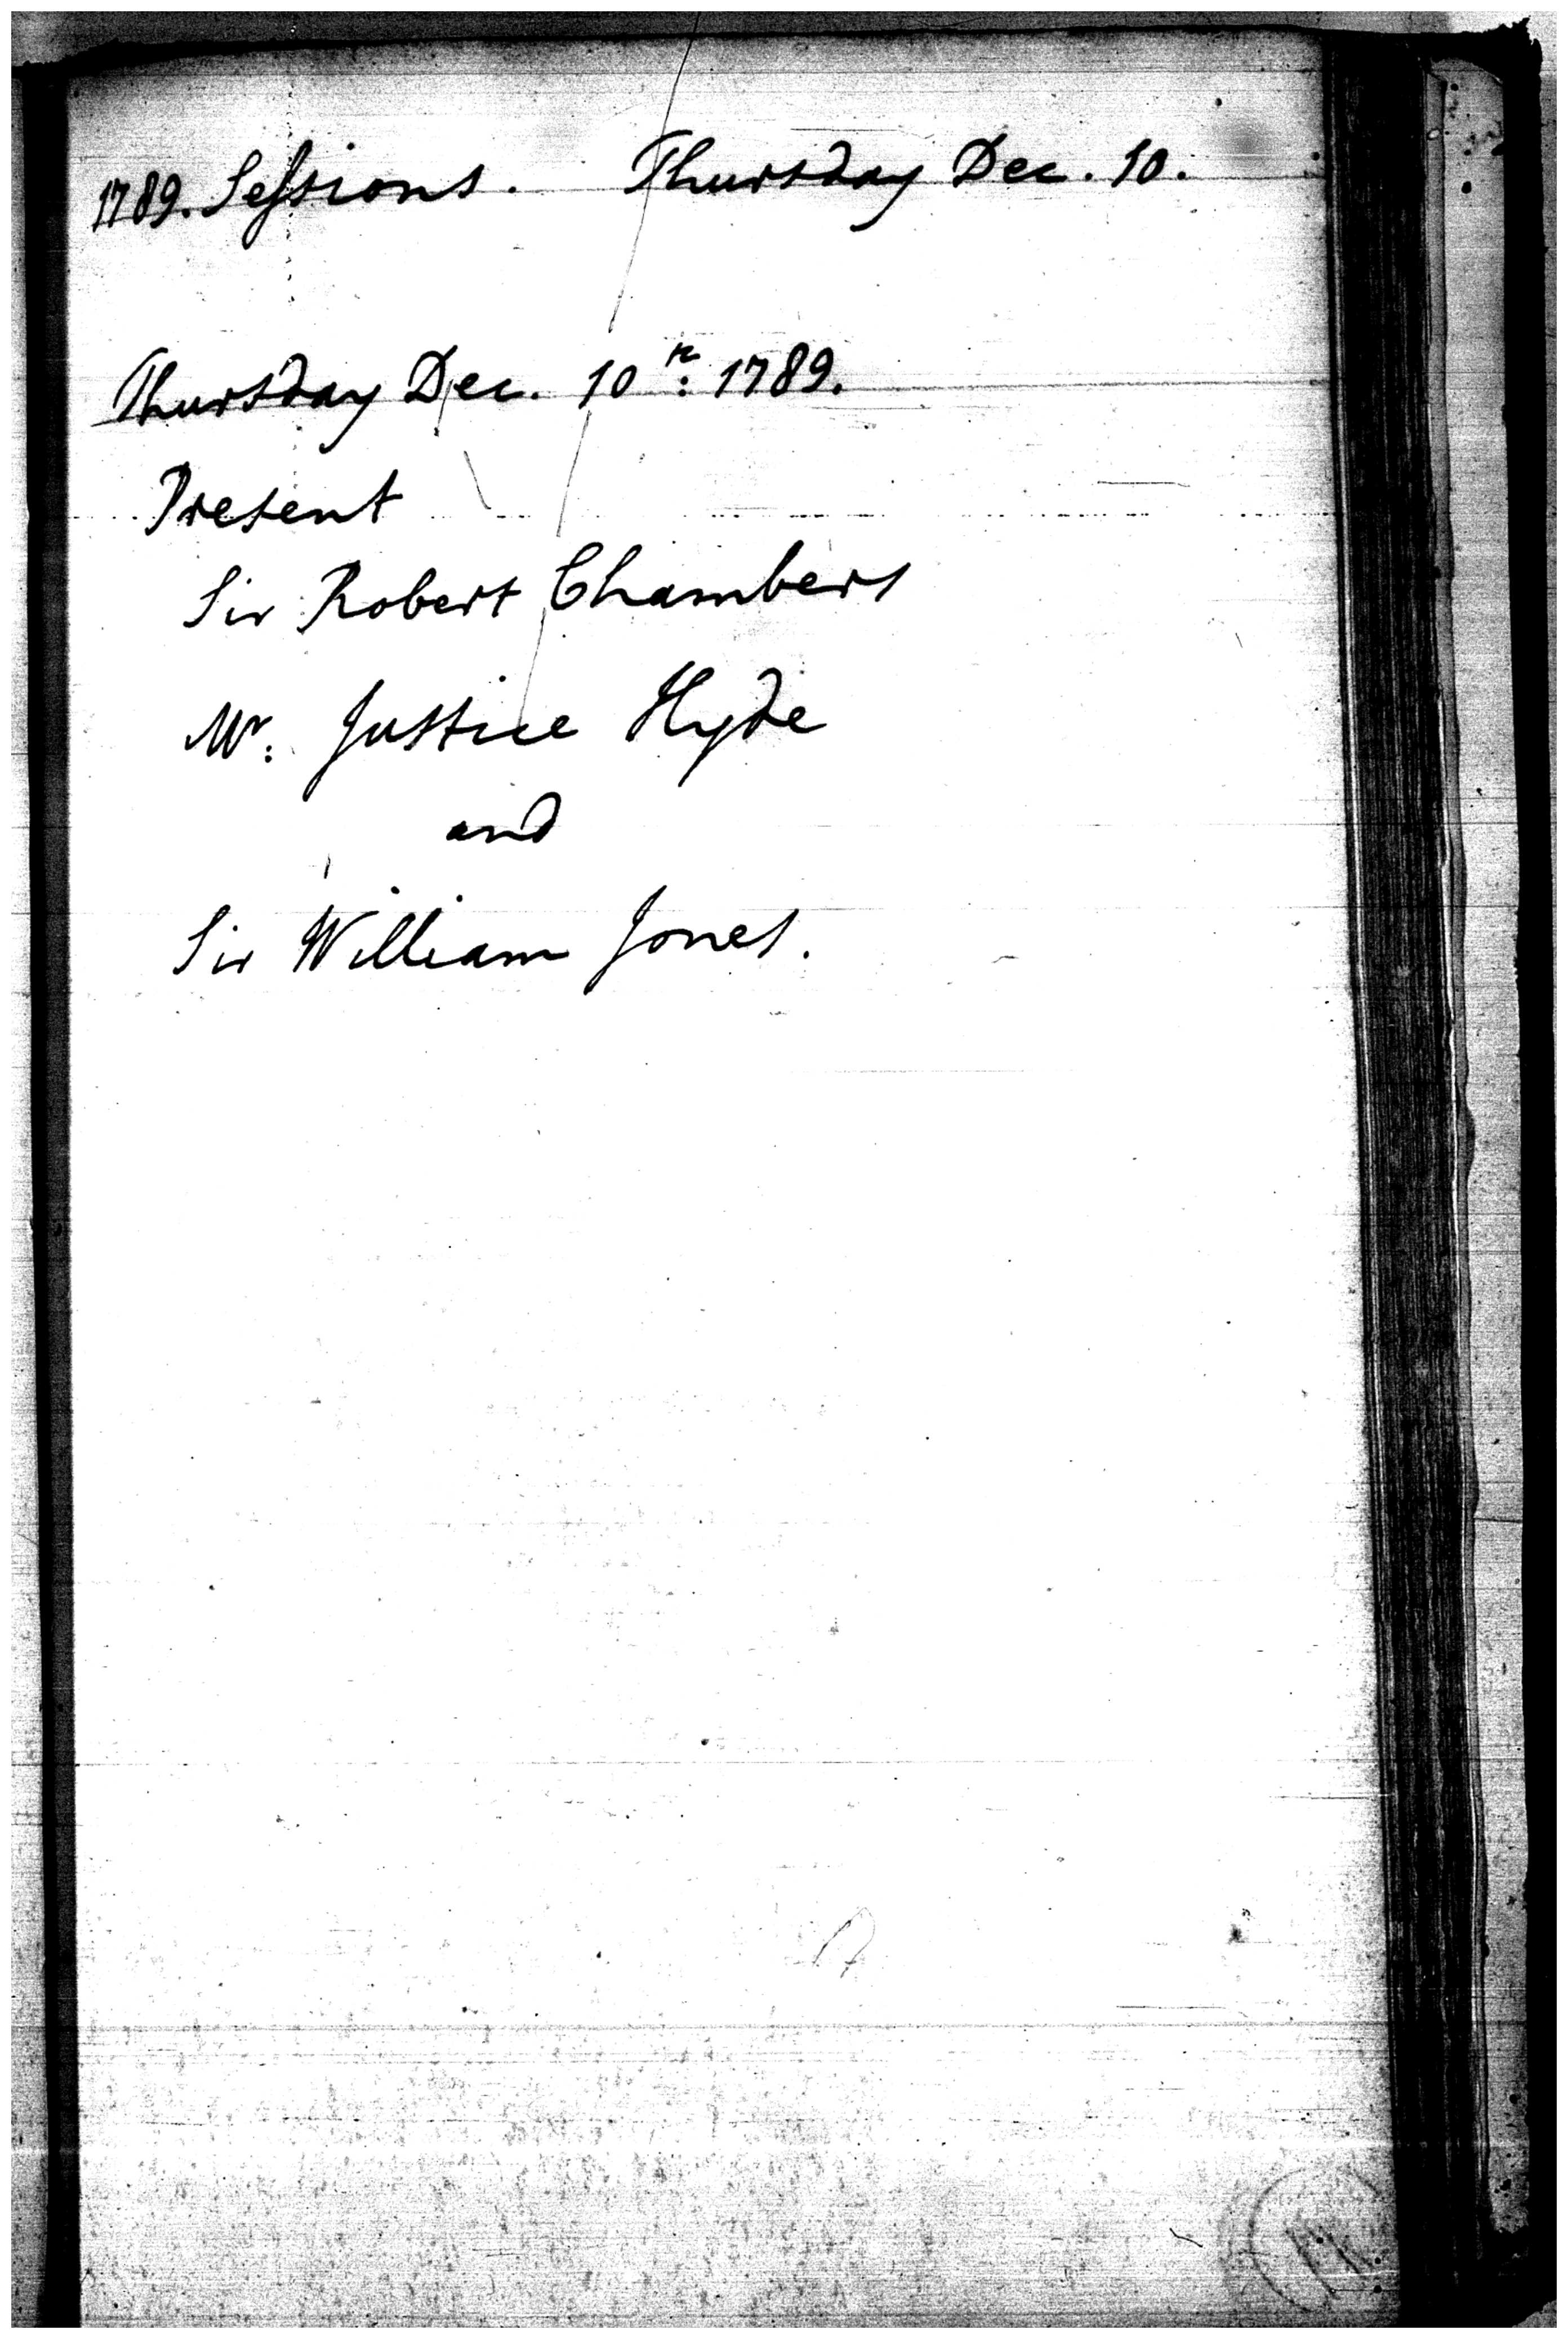 1789. Sessions. Thursday Dec. 10.
Thursday Dec. 10th: 1789.
Present
Sir Robert Chambers
Mr: Justice Hyde
and
Sir William Jones.